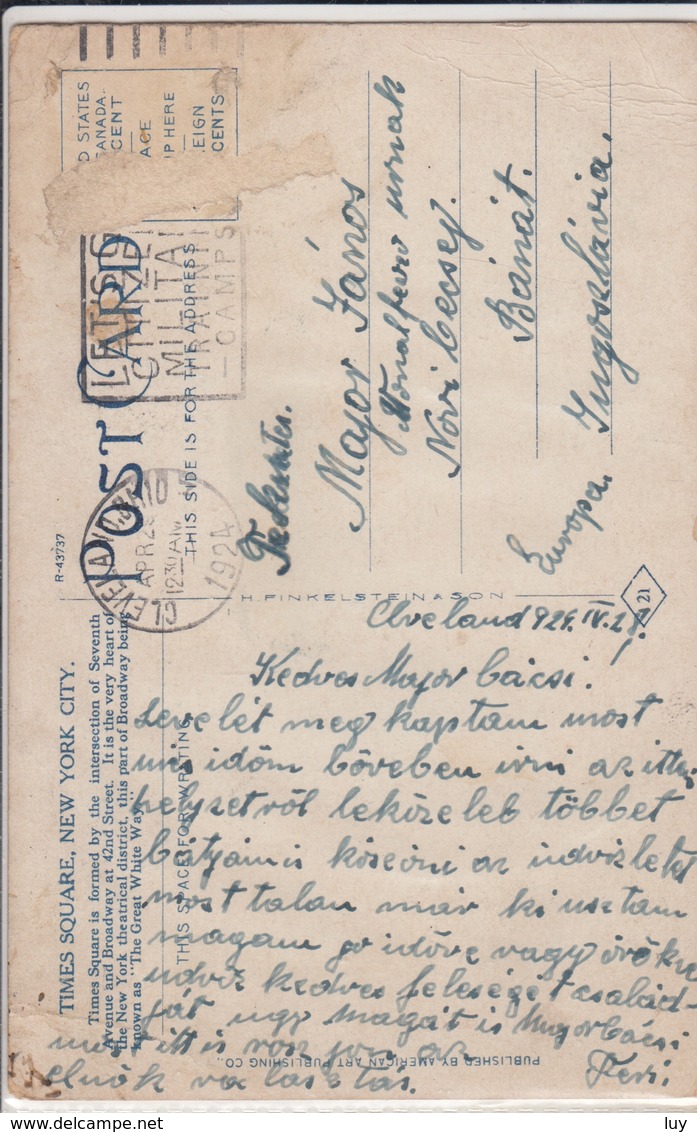 D STATES
CANADA
CENT
ACE
P HERE
EIGN
CENTS
LET'S G
CITIZE
MILITA
TRAINI
CAMPS
POST CARD
THIS SIDE IS FOR THE ADDRESS
CLEVELAND, OHIO
APR 2
12 30 AM
1924
R-43737
Major János
urnak
Novi becsej.
Bánát.
Jugoszlávia.
Europa.
H. FINKELSTEIN & SON
21
TIMES SQUARE, NEW YORK CITY.
Times Square is formed by the intersection of Seventh
Avenue and Broadway at 42nd Street. It is the very heart of
the New York theatrical district, this part of Broadway being
known as "The Great White Way."
THIS SPACE FOR WRITING
PUBLISHED BY AMERICAN ART PUBLISHING CO.,
Cleveland 924. IV. 28.
Kedves Major bácsi.
Levelét meg kaptam most
nis időm bővebben irni az
helyzetről leközeleb többet
az üdvözletet
most talan már ki usztam
magam jo időre vagy örökre
üdvöz kedves feleségét család-
ját ugy magát is Major bácsi
most itt is rosz
elnök valasztas. Feri.